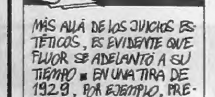 MÁS ALLÁ DE LOS JUICIOS ES-
TÉTICOS, ES EVIDENTE QUE
FLUOR SE ADELANTÓ A SU
TIEMPO ■ EN UNA TIRA DE
1929, POR EJEMPLO, PRE-